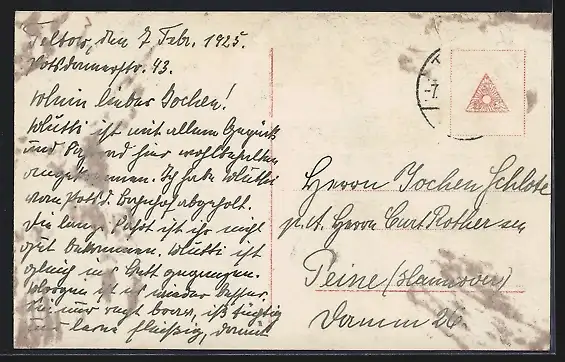 Teltow, den 7. Febr. 1925.
Potsdamerstr. 43.
Mein lieber Jochen!
Mutti ist mit allem Gepäck
und hier wohlbehalten
angekommen. Ich habe Mutti
vom Potsd. Bahnhof abgeholt.
Die lange Fahrt ist ihr nicht
gut bekommen. Mutti ist
gleich ins Bett gegangen.
Morgen ist es wieder besser.
Sei nur recht brav, iß tüchtig
und lerne fleißig, damit
-7.
Herrn Jochen Schlote
p. A. Herrn Curt Rother sen
Peine (Hannover)
Damm 26.